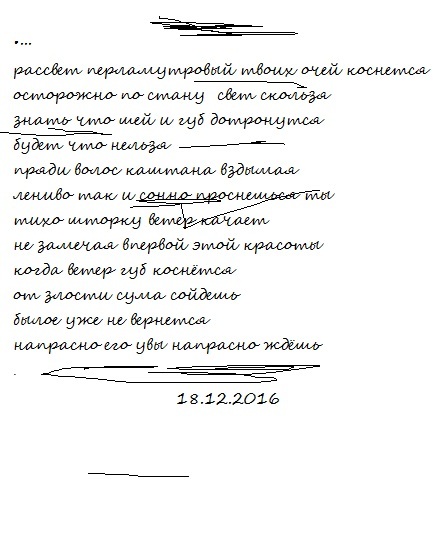 .…
рассвет перламутровый твоих очей коснется
осторожно по стану свет скользя
знать что шей и губ дотронутся
будет что нельзя
пряди волос каштана вздымая
лениво так и сонно проснешься ты
тихо шторку ветер качает
не замечая впервой этой красоты
когда ветер губ коснётся
от злости сума сойдешь
былое уже не вернется
напрасно его увы напрасно ждёшь
.
18.12.2016